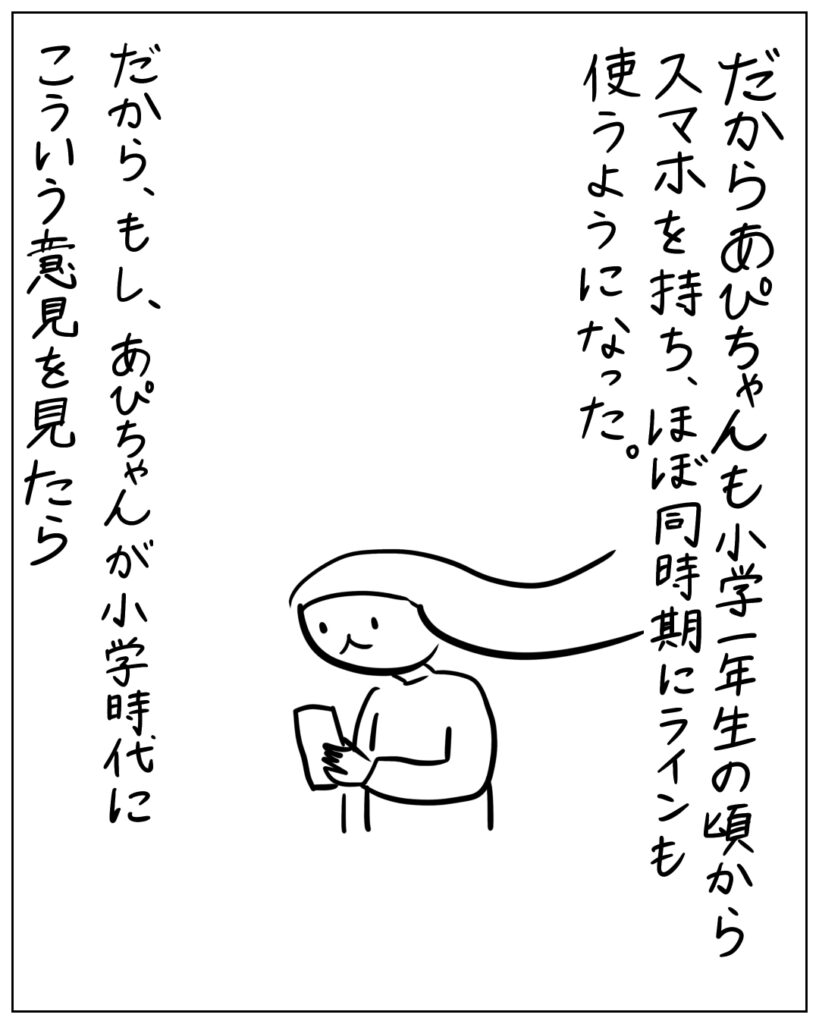 だからあぴちゃんも小学一年生の頃から
スマホを持ち、ほぼ同時期にラインも
使うようになった。
だから、もし、あぴちゃんが小学時代に
こういう意見を見たら